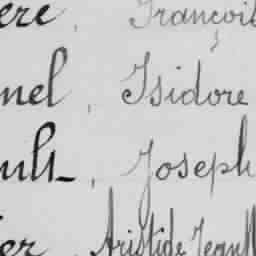 ère, Françoi
nel, Isidore
ult, Joseph
er, Aristide Jean